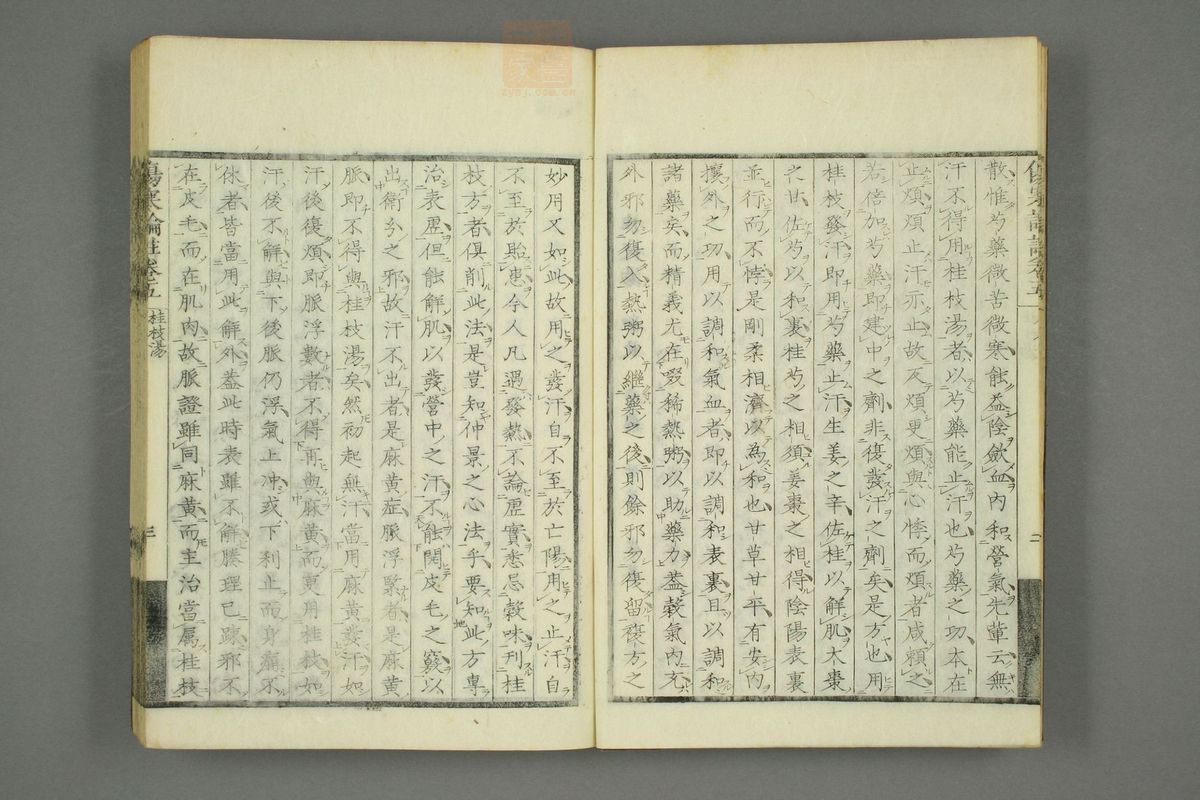 散惟芍藥微苦微寒能益陰斂血內和營氣先輩云無
汗不得用桂枝湯者以芍藥能止汗也芍藥之功本在
止煩煩止汗亦止故反煩更煩與心悸而煩者咸賴之
若倍加芍藥即建中之劑非復發汗之劑矣是方也用
桂枝發汗即用芍藥止汗生姜之辛佐桂以解肌大棗
之甘佐芍以和裏桂芍之相須姜棗之相得陰陽表裏
並行而不悖是剛柔相濟以為和也甘草甘平有安內
攘外之功用以調和氣血者即以調和表裏且以調和
諸藥矣而精義尤在啜稀熱粥以助藥力蓋穀氣內充
外邪勿復入熱粥以繼藥之後則餘邪勿復留複方之
妙用又如此故用之發汗自不至於亡陽用之止汗自
不至於貽患今人凡遇發熱不論虛實悉忌穀味刊桂
枝方者俱削此法是豈知仲景之心法乎要知此方專
治表虛但能解肌以發營中之汗不能開皮毛之竅以
出衛分之邪故汗不出者是麻黃症脈浮緊者是麻黃
脈即不得與桂枝湯矣然初起無汗當用麻黃發汗如
汗後復煩即脈浮數者不得再與麻黃而更用桂枝如
汗後不解與下後脈仍浮氣上冲或下利止而身痛不
休者皆當用此解外蓋此時表雖不解腠理已疎邪不
在皮毛而在肌肉故脈證雖同麻黃而主治當屬桂枝
傷寒論註卷五
桂枝湯
三
二
zysj.com.cn